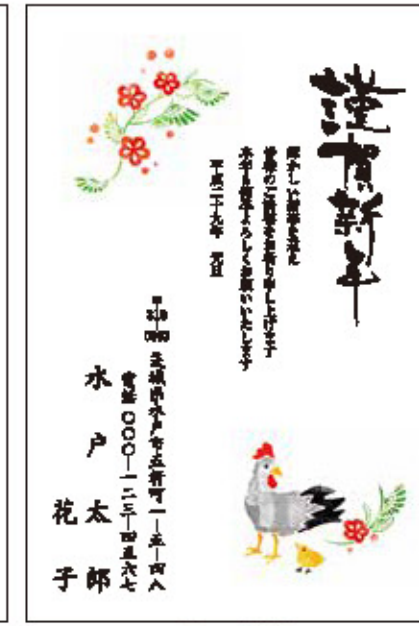 謹賀新年
輝かしい新春を迎え
皆様のご健康をお祈り申し上げます
本年も何卒よろしくお願いいたします
平成二十九年 元旦
茨城県水戸市五軒町一―五―四八
電話 〇〇〇―一二三―四五六七
水戸太郎
花子